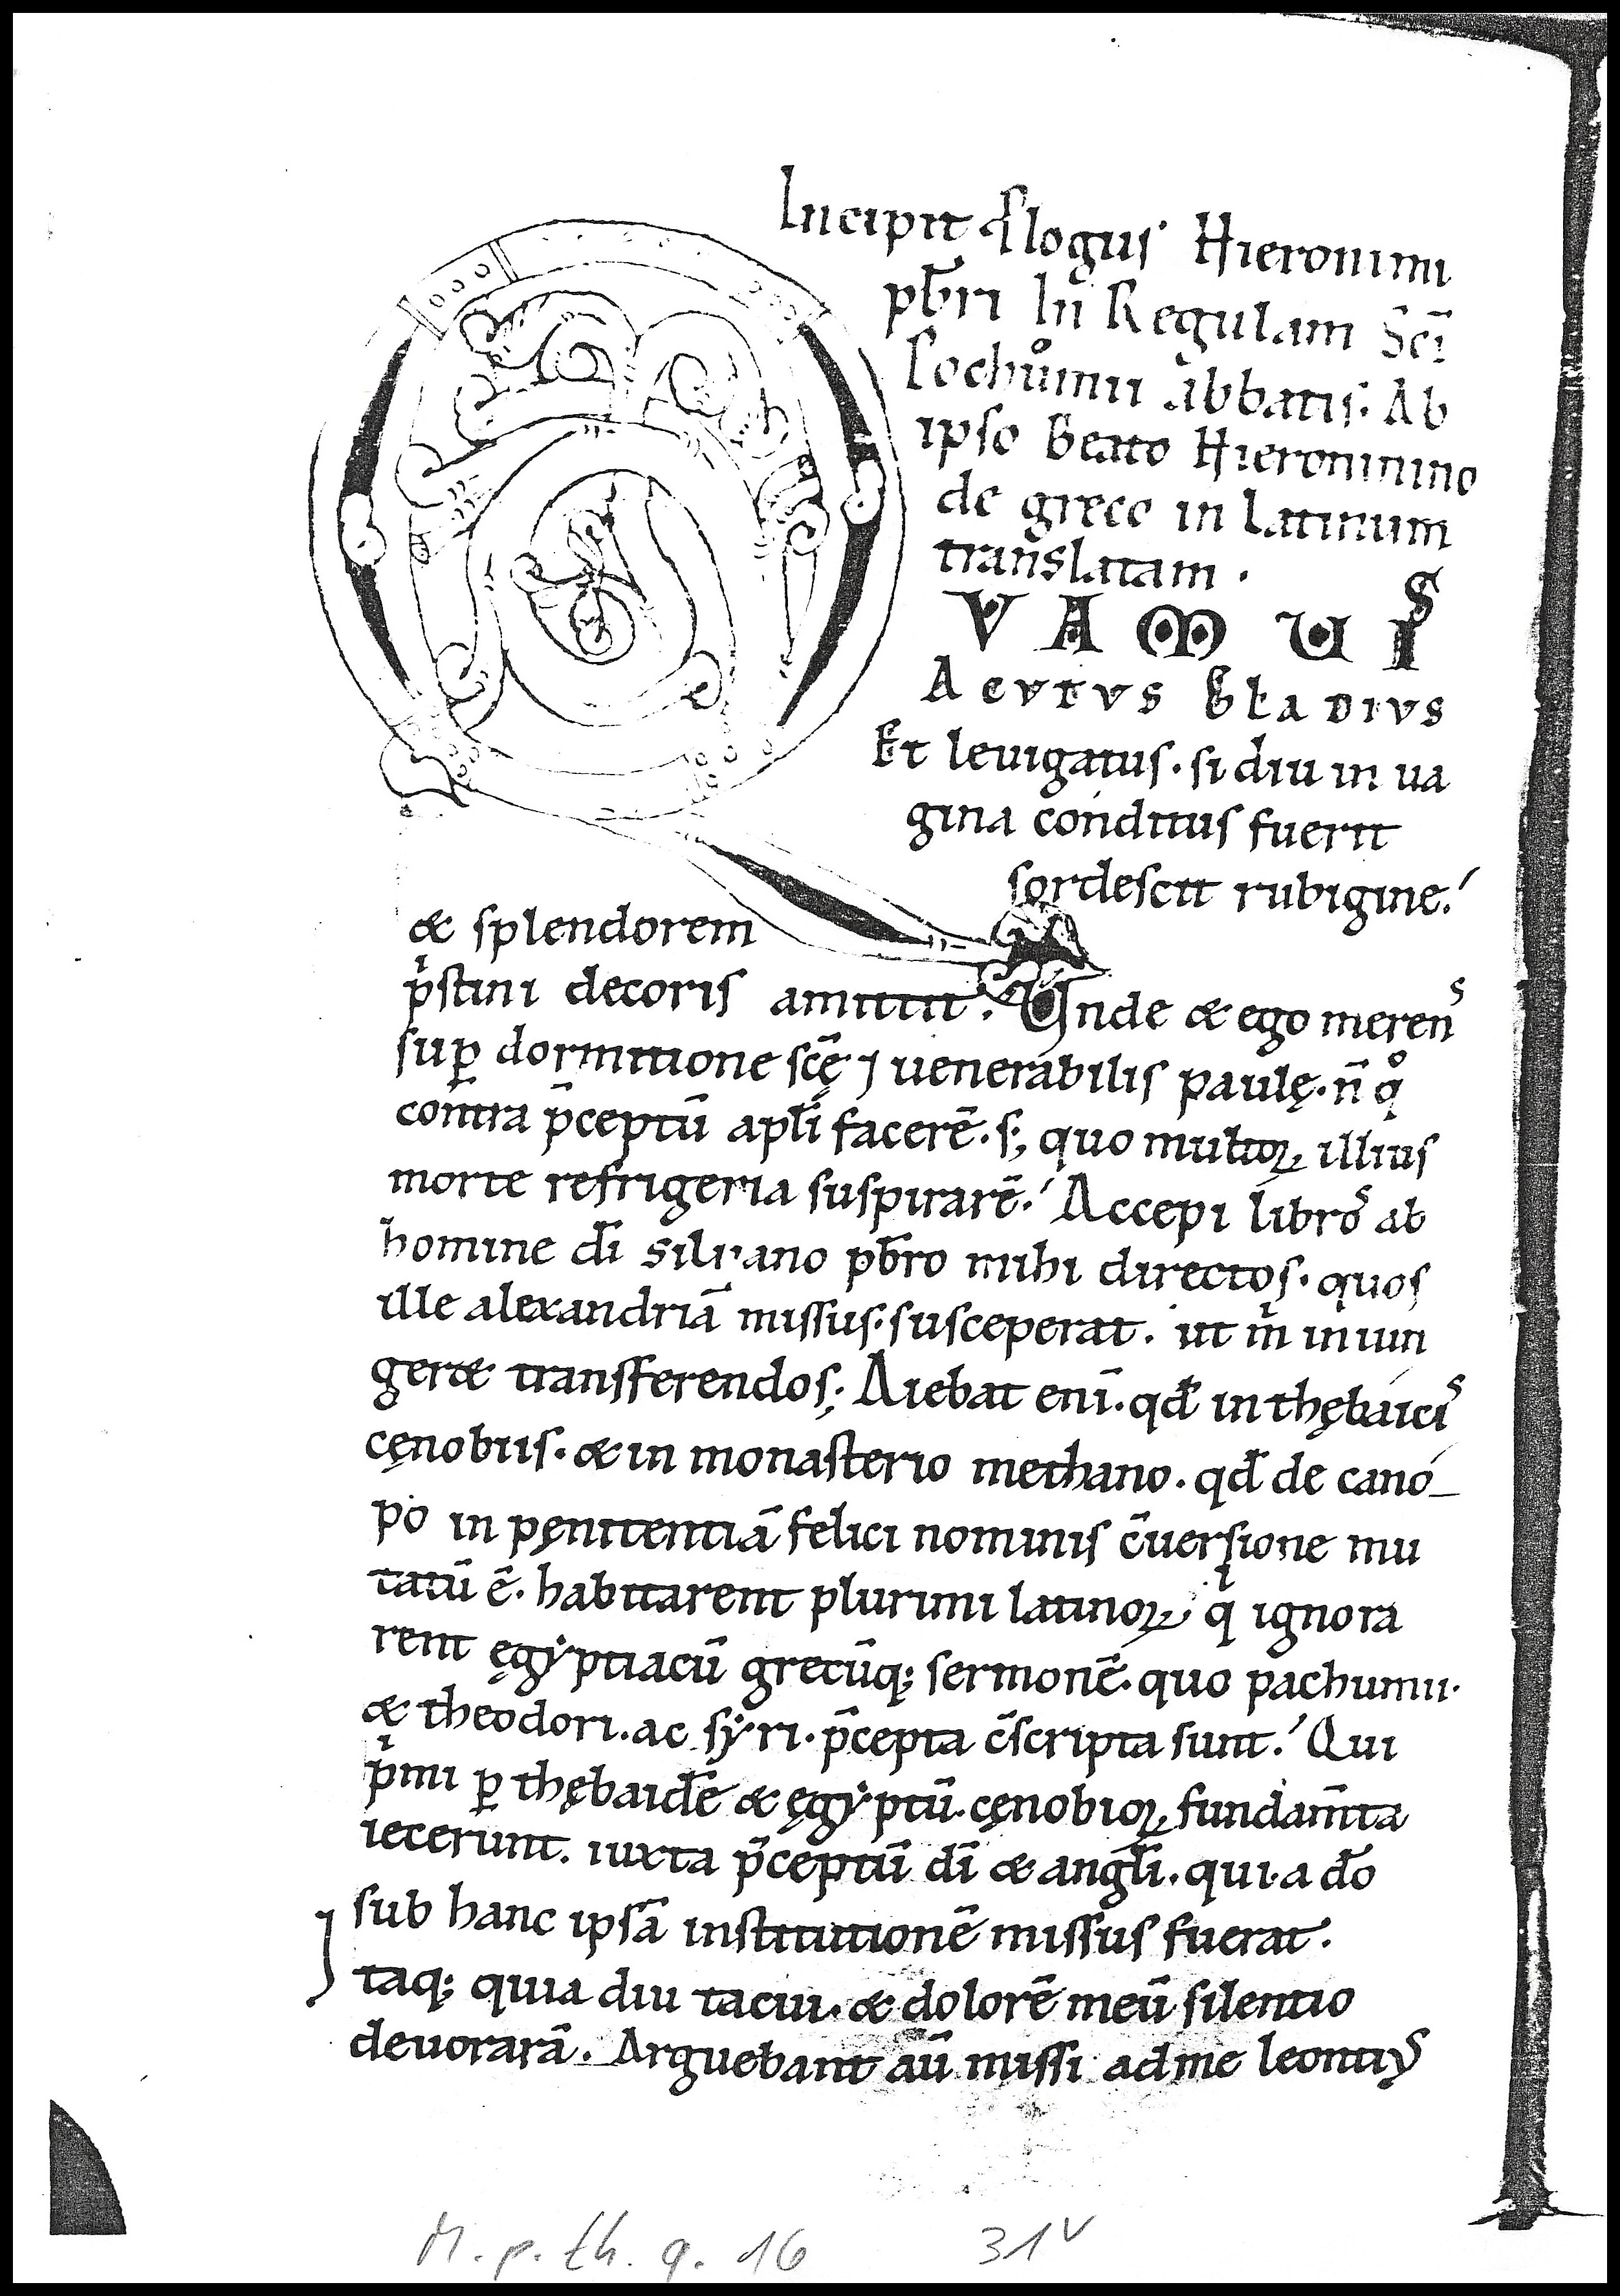 Incipit ꝓlogus Hieronimi
pb̄ri In Regulam Sc̄i
Pochumii abbatis. Ab
ipso Beato Hieronimino
de greco in latinum
translatam.
QVAMUIS
ACVTVS GLADIVS
Et leuigatus. si diu in ua
gina conditus fuerit
sordescit rubigine.
& splendorem
pͥstini decoris amittit. Unde & ego merens
suꝑ dormitione scę̄ ⁊ uenerabilis paulę. n̄ qͦ
contra p̄ceptū apl̄i facerē. s; quo multoꝝ illius
morte refrigeria suspirarē. Accepi libros ab
homine dī siluano pb̄ro mihi directos. quos
ille alexandriā missus. susceperat. ut mͥ iniun
ger& transferendos; Aiebat enī. qd̄ in thębaicis
cęnobiis. & in monasterio methano. qd̄ de cano-
po in pęnitentiā felici nominis c̄uersione mu
tatū ē. habitarent plurimi latinoꝝ qͥ ignora
rent ęgẏptiacū grecūq; sermonē. quo pachumii.
& theodori. ac sẏri. p̄cepta c̄scripta sunt. Qui
pͥmi ꝑ thębaidē & ęgẏptū. cęnobioꝝ fundam̄ta
iecerunt. iuxta p̄ceptū dī & angl̄i. qui. a dō
sub hanc ipsā institutionē missus fuerat.
Itaq; quia diu tacui. & dolorē meū silentio
deuorarā. Arguebant aū missi ad me leontiꝰ
M. p. th. q. 16 31v